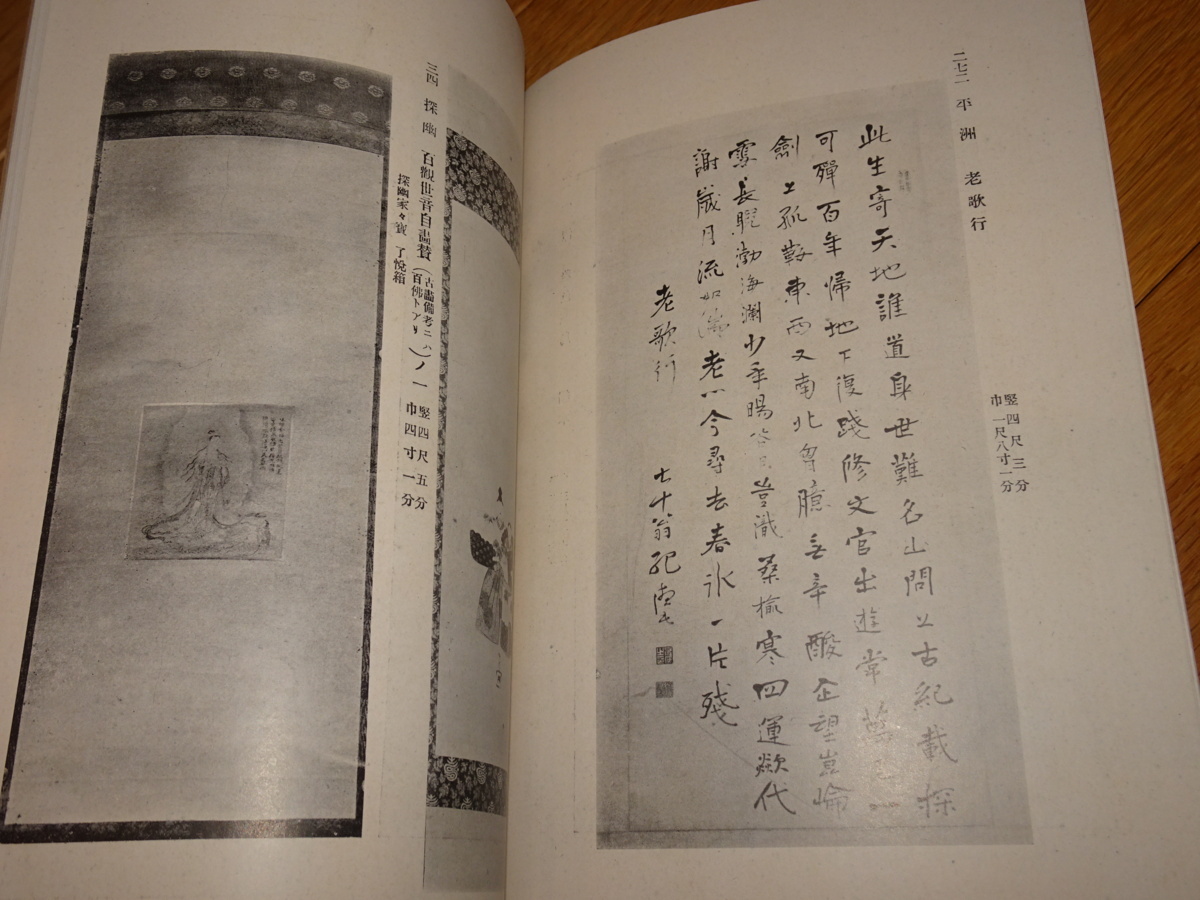 二七二 平洲 老歌行
竪四尺三分
巾一尺八寸一分
此生寄天地誰道身世難名山問上古紀載探
可殫百年歸地下復踐修文官出遊常
劍上孤鞍東西又南北胷臆無辛酸企望豈
雲長眺渤海瀾少年暘谷日豈識桑榆寒四運歘代
謝歲月流如 老以今尋去春氷一片殘
老歌行
七十翁紀
三四 探幽 百觀世音自畫賛(古畫備考ニハ百佛トアリ)ノ一
竪四尺五分
巾四寸一分
探幽家々寶 了悅箱